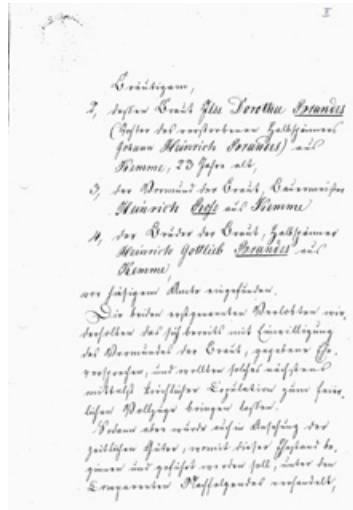 II
Bräutigam,
2, dessen Braut Ilse Dorothee Brandes
(Tochter des verstorbenen Halbspänners
Johann Heinrich Brandes) aus
Kemme, 23 Jahre alt,
3, der Vormund der Braut, Bauermeister
Heinrich aus Kemme
4, der Bruder der Braut, Halbspänner
Heinrich Gottlieb Brandes aus
Kemme,
vor hiesigem Amte eingefunden.
Die beiden erstgenannten Verlobten wie-
derholten das sich bereits mit Einwilligung
des Vormundes der Braut, gegebene Ehe-
versprechen, und wollten solches nächstens
mittelst kirchlicher Copulation zum feier-
lichen Vollzuge bringen lassen.
Sodann aber wurde auch in Ansehung der
zeitlichen Güter, womit dieser Ehestand be-
gonnen und geführt werden soll, unter den
Comparenten Nachfolgendes verhandelt,